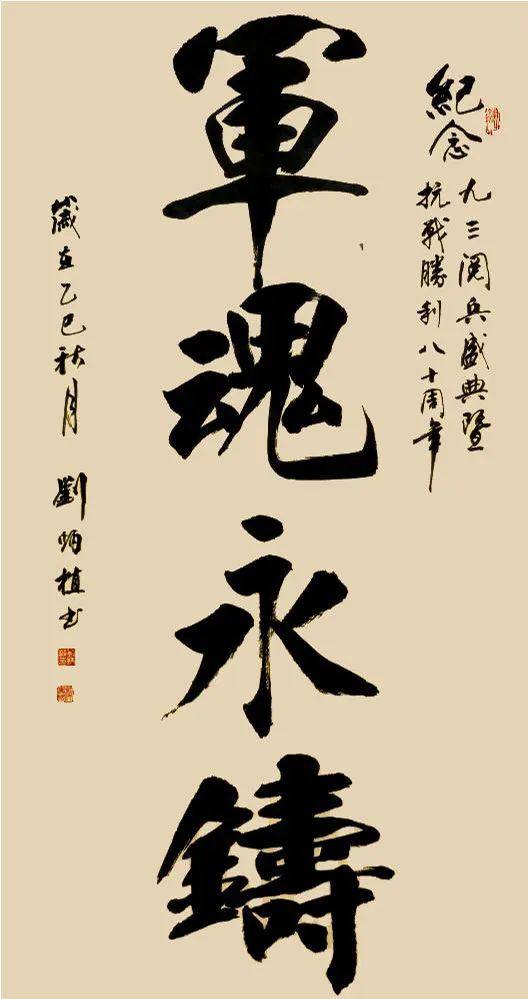 紀念
九三閱兵盛典暨
抗戰勝利八十周年
軍魂永鑄
歲在乙巳秋月 劉炳植书